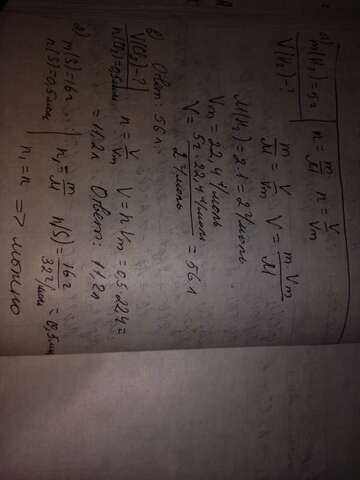 а) m(H₂)=5г | n = m/M   n = V/Vm
V(H₂)-?   m/M = V/Vm   V = m Vm/M
M(H₂) = 2·1 = 2 г/моль
Vm = 22,4 л/моль
V = 5г · 22,4 л/моль / 2 г/моль = 56 л
Ответ: 56 л.
в) V(O₂)-?
n(O₂)=0,5моль | n = V/Vm   V = n Vm = 0,5·22,4 =
= 11,2л   Ответ: 11,2л
г)
m(S)=16г
n(S)=0,5моль | n₁ = m/M   n(S) = 16г / 32г/моль = 0,5моль
n₁ = n => можно